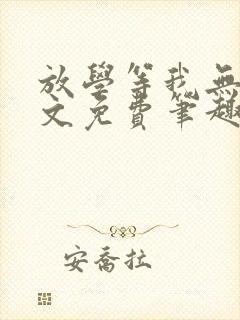 放學等我無
文免費筆趣
安喬拉